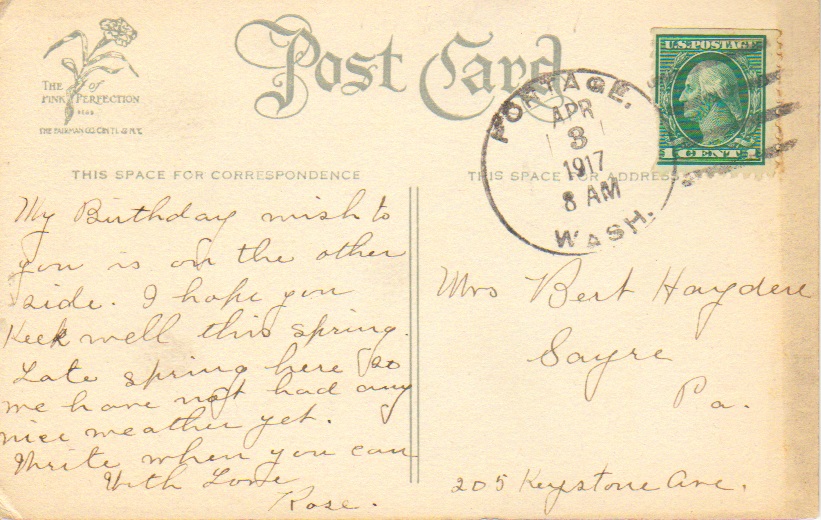 Post Card
THE PINK of PERFECTION
THE FAIRMAN CO. CIN'TI. & N.Y.
U.S. POSTAGE
1 CENT 1
PORTAGE.
APR
3
1917
8 AM
WASH.
THIS SPACE FOR CORRESPONDENCE
THIS SPACE FOR ADDRESS
My Birthday wish to
you is on the other
side. I hope you
Keek well this spring.
Late spring here so
we have not had any
nice weather yet.
Write when you can
With Love
Rose.
Mrs Bert Haydere
Sayre
Pa.
205 Keystone Ave.